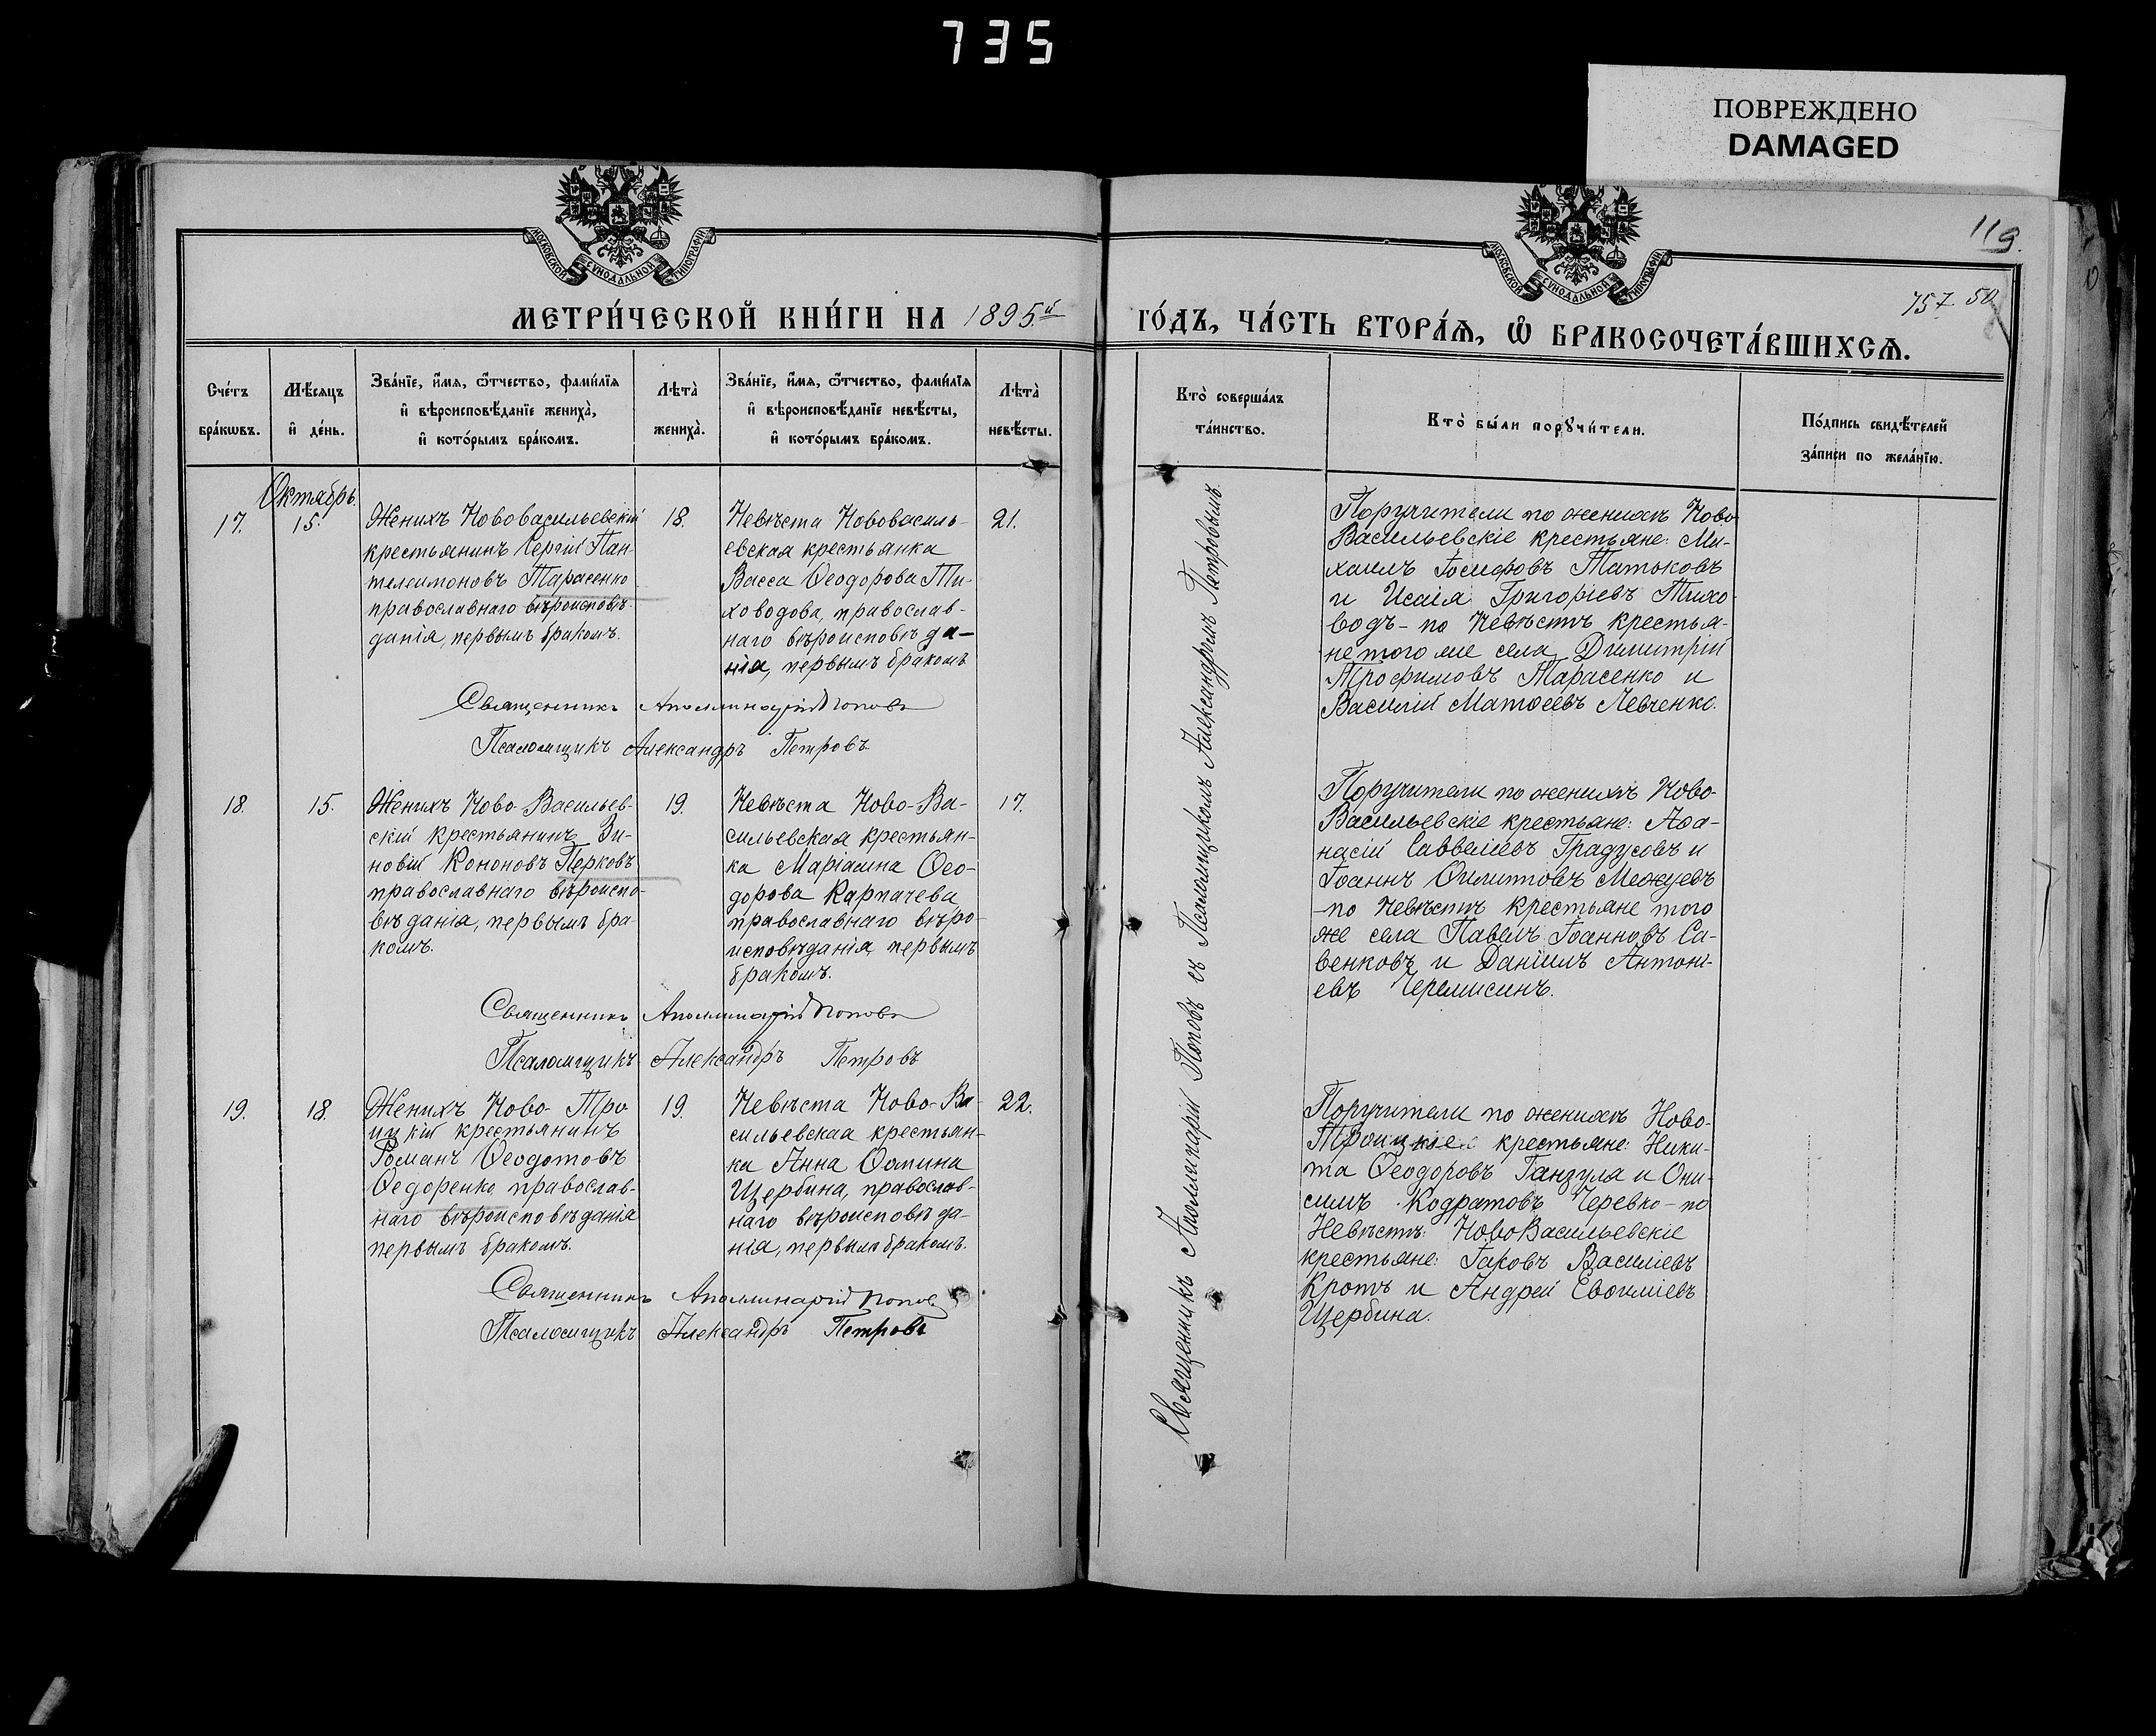 735
ПОВРЕЖДЕНО
DAMAGED
МОСКОВСКОЙ СѴНОДАЛЬНОЙ ТИПОГРАФІИ
МОСКОВСКОЙ СѴНОДАЛЬНОЙ ТИПОГРАФІИ
119.
757 50
МЕТРИ́ЧЕСКОЙ КНИ́ГИ НА 1895й
ГО́ДЪ, ЧА́СТЬ ВТОРА́Ѧ, Ѡ҆ БРАКОСОЧЕТА́ВШИХСѦ.
Сче́тъ
бра́кѡвъ.
Мѣ́сяцъ
и҆ де́нь.
Зва́нїе, и҆́мя, ѻ҆́тчество, фами́лїя
и҆ вѣроисповѣ́данїе жениха̀,
и҆ кото́рымъ бра́комъ.
Лѣта̀
жениха̀.
Зва́нїе, и҆́мя, ѻ҆́тчество, фами́лїя
и҆ вѣроисповѣ́данїе невѣ́сты,
и҆ кото́рымъ бра́комъ.
Лѣта̀
невѣ́сты.
Кто̀ соверша́лъ
та́инство.
Кто̀ бы́ли порꙋчи́тели.
По́дпись свидѣ́телей
за́писи по жела́нїю.
Октябрь.
17.
15.
Женихъ Нововасильевскій
крестьянинъ Сергій Пан-
телеимоновъ Тарасенко
православнаго вѣроисповѣ-
данія, первымъ бракомъ.
18.
Невѣста Нововасиль-
евская крестьянка
Васса Ѳеодорова Ти-
ховодова, православ-
наго вѣроисповѣда-
нія, первымъ бракомъ
21.
Поручители по женихѣ Ново
Васильевскіе крестьяне: Ми-
хаилъ Іосифовъ Татьковъ
и Исаія Григоріевъ Тихо-
водъ - по Невѣстѣ крестья-
не того же села Димитрій
Трофимовъ Тарасенко и
Василій Матѳеевъ Левченко.
Священникъ Аполлинарій Поповъ
Псаломщикъ Александръ Петровъ
18.
15.
Женихъ Ново-Васильев-
скій крестьянинъ Зи-
новій Кононовъ Перковъ
православнаго вѣроиспо-
вѣданія, первымъ бра-
комъ.
19.
Невѣста Ново-Ва-
сильевская крестьян-
ка Маріамна Ѳео-
дорова Карпачева
православнаго вѣро-
исповѣданія, первымъ
бракомъ.
17.
Поручители по женихѣ Ново-
Васильевскіе крестьяне: Аѳа-
насій Савветевъ Градусовъ и
Іоаннъ Филипповъ Межуевъ
- по Невѣстѣ крестьяне того
же села Павелъ Іоанновъ Са-
венковъ и Даніилъ Антоні-
евъ Черемисинъ.
Священникъ Аполлинарій Поповъ
Псаломщикъ Александръ Петровъ
19.
18.
Женихъ Ново-Тро
ицкій крестьянинъ
Романъ Ѳеодотовъ
Ѳедоренко, православ-
наго вѣроисповѣданія
первымъ бракомъ.
19.
Невѣста Ново-Ва-
сильевская крестьян-
ка Анна Ѳомина
Щербина, православ-
наго вѣроисповѣда-
нія, первымъ бракомъ.
22.
Поручители по женихѣ Ново-
Троицкіе крестьяне: Ники-
та Ѳеодоровъ Ганзула и Они-
симъ Кодратовъ Черевко - по
Невѣстѣ: НовоВасильевскіе
крестьяне: Іаковъ Василіевъ
Кротъ и Андрей Евѳиміевъ
Щербина.
Священникъ Аполлинарій Поповъ
Псаломщикъ Александръ Петровъ
Священникъ Аполлинарій Поповъ съ Псаломщикомъ Александромъ Петровымъ.